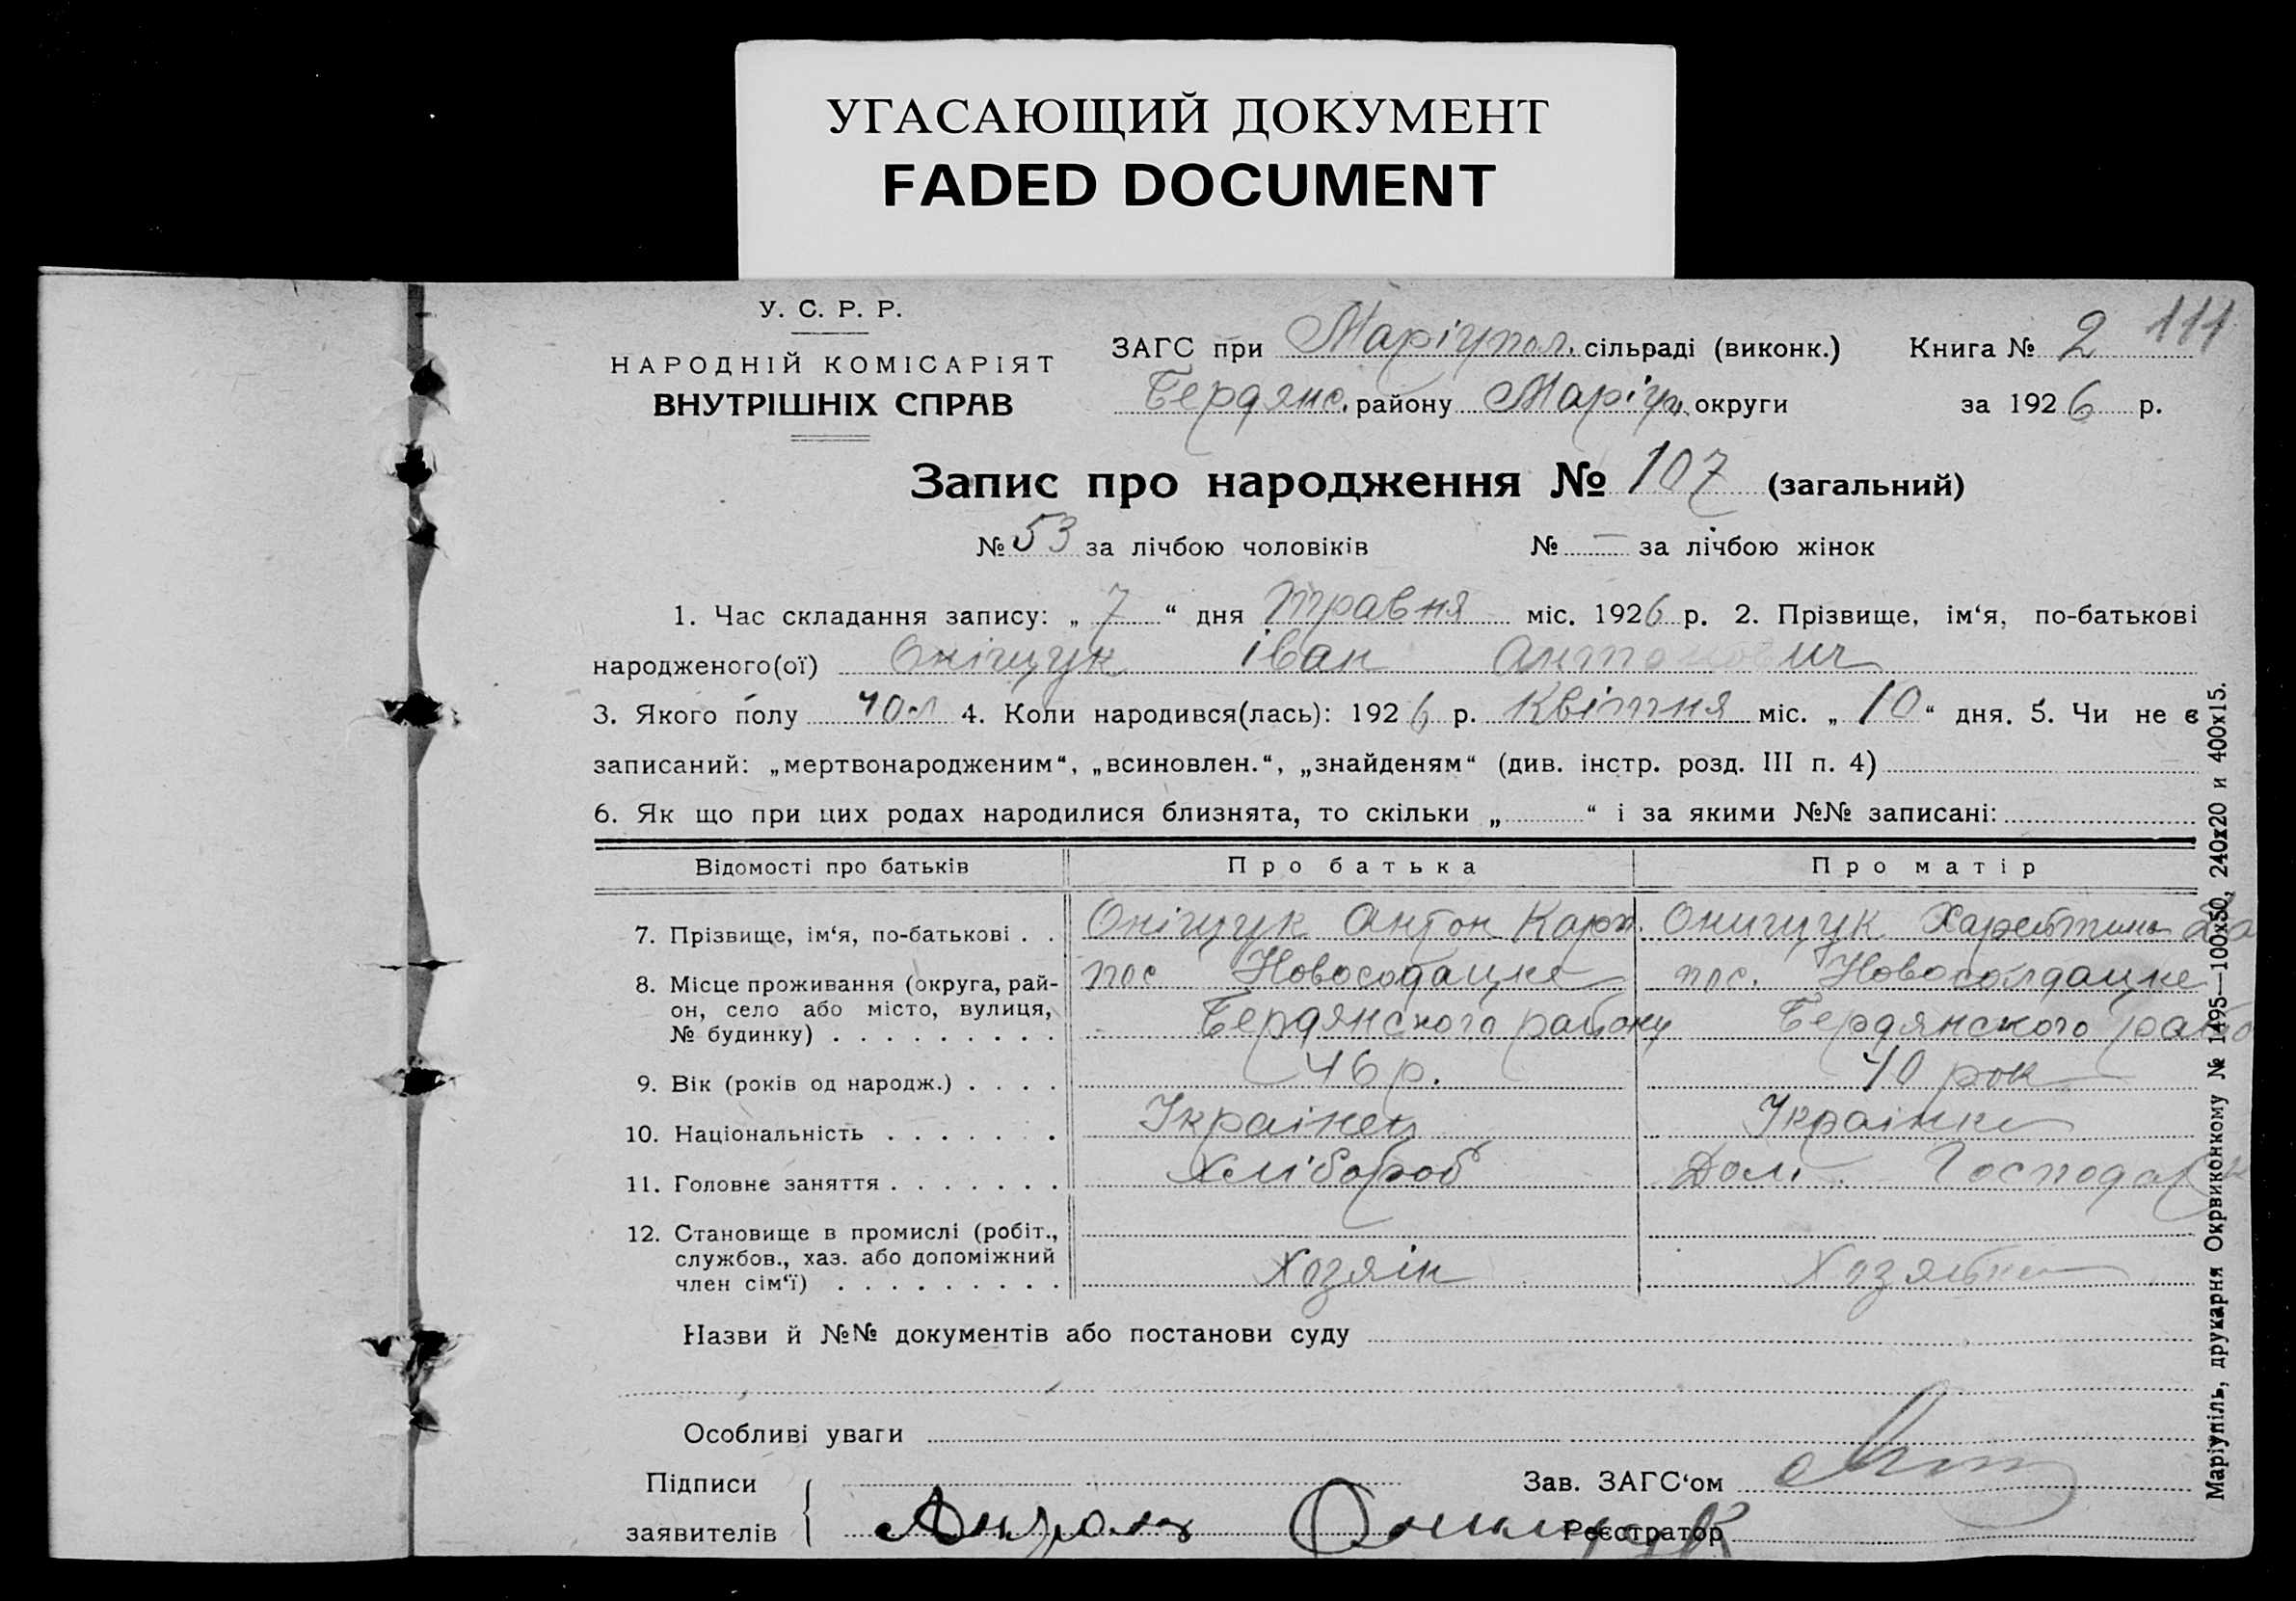 УГАСАЮЩИЙ ДОКУМЕНТ
FADED DOCUMENT
У. С. Р. Р.
НАРОДНІЙ КОМІСАРІЯТ
ВНУТРІШНІХ СПРАВ
ЗАГС при Маріупол. сільраді (виконк.) Книга № 2 111
Бердянс. району Маріуп. округи за 1926 р.
Запис про народження № 107 (загальний)
№ 53 за лічбою чоловіків № — за лічбою жінок
1. Час складання запису: „ 7 “ дня травня міс. 1926 р. 2. Прізвище, ім‘я, по-батькові
народженого(ої) Оніщук іван Антонович
3. Якого полу чол 4. Коли народився(лась): 1926 р. Квітня міс. „ 10 “ дня. 5. Чи не є
записаний: „мертвонародженим“, „всиновлен.“, „знайденям“ (див. інстр. розд. III п. 4)
6. Як що при цих родах народилися близнята, то скільки „ “ і за якими №№ записані:
Відомості про батьків Про батька Про матір
7. Прізвище, ім‘я, по-батькові . . Оніщук Антон Карп. Онищук
8. Місце проживання (округа, рай- пос Новосодацке пос. Новосолдацке
он, село або місто, вулиця, Бердянского району Бердянского
№ будинку) . . . . . . . . .
9. Вік (років од народж.) . . . . 46 р. 40 рок
10. Національність . . . . . . . Украінец Украінка
11. Головне заняття . . . . . . . Хлібороб Дом. Господарк
12. Становище в промислі (робіт.,
службов., хаз. або допоміжний Хозяін Хозяйка
член сім‘ї) . . . . . . . . .
Назви й №№ документів або постанови суду
Особливі уваги
Підписи Зав. ЗАГС‘ом
заявителів Антон Онищук Реєстратор
Маріупіль, друкарня Окрвиконкому № 1495—100х50, 240х20 и 400х15.